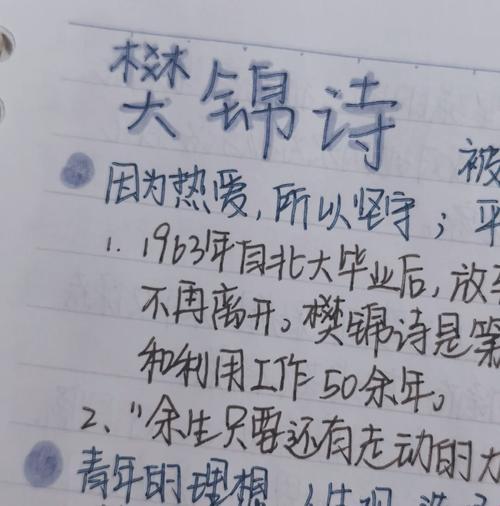 樊锦诗
被
因为热爱，所以坚守；平
1. 1963年自北大毕业后，放
不再离开。樊锦诗是第
和利用工作50余年。
2、“余生只要还有走动的力
青年的理想